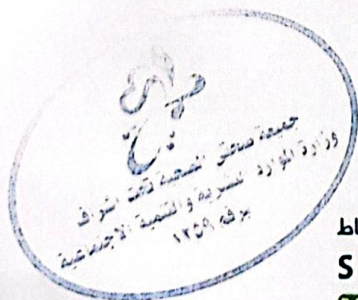 جمعية
الصحية تحت اشراف
وزارة الموارد البشرية والتنمية الاجتماعية
برقم ١٣٥٩
اط
S